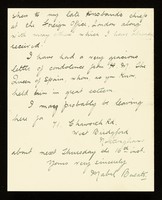 shew to my late Husband's chief
at the Foreign Office, London along
with many others which I have
received.
I have had a very gracious
letter of condolence from H.M. The
Queen of Spain whom as you know
held him in great esteem.
I may probably be leaving
here for
West Bridgford
Nottingham
about next Thursday the inst.
Yours very sincerely
Mabel